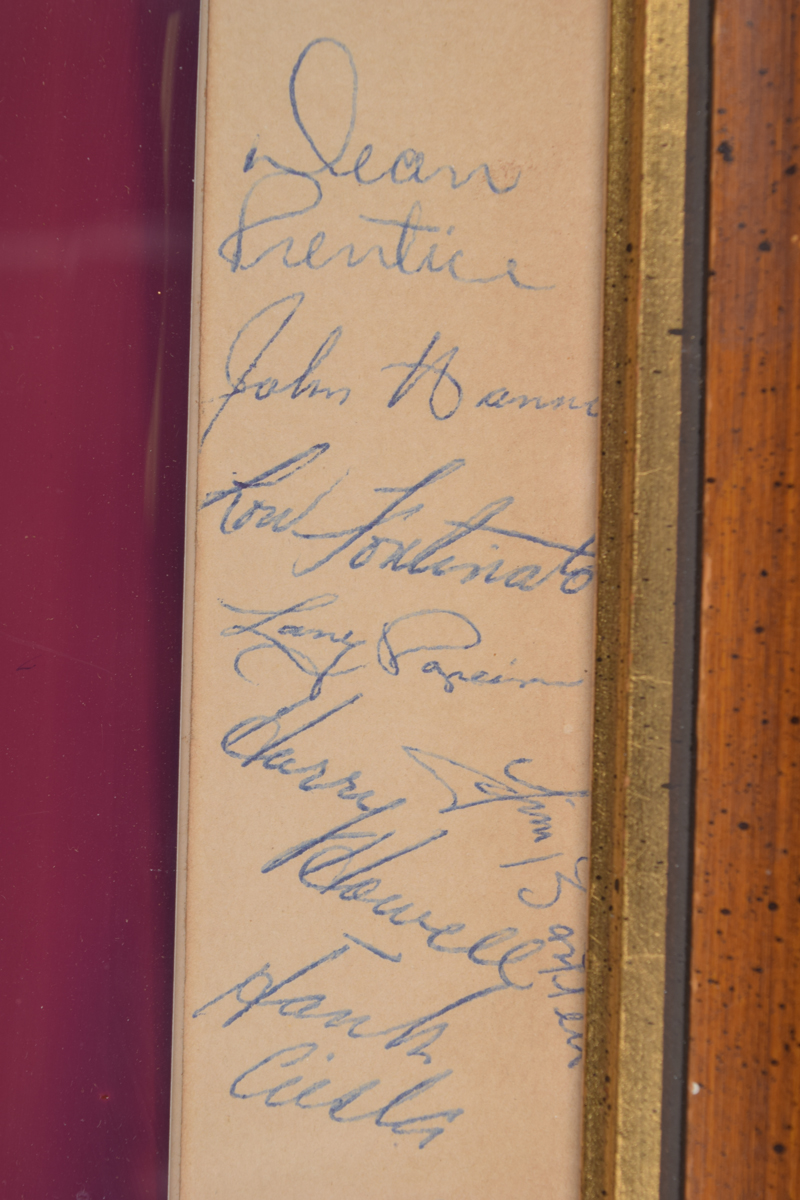 Dean
Prentice
John Hanna
Lou Fontinato
Larry Popein
Harry
Howell
Jim Bartlett
Hank
Ciesla